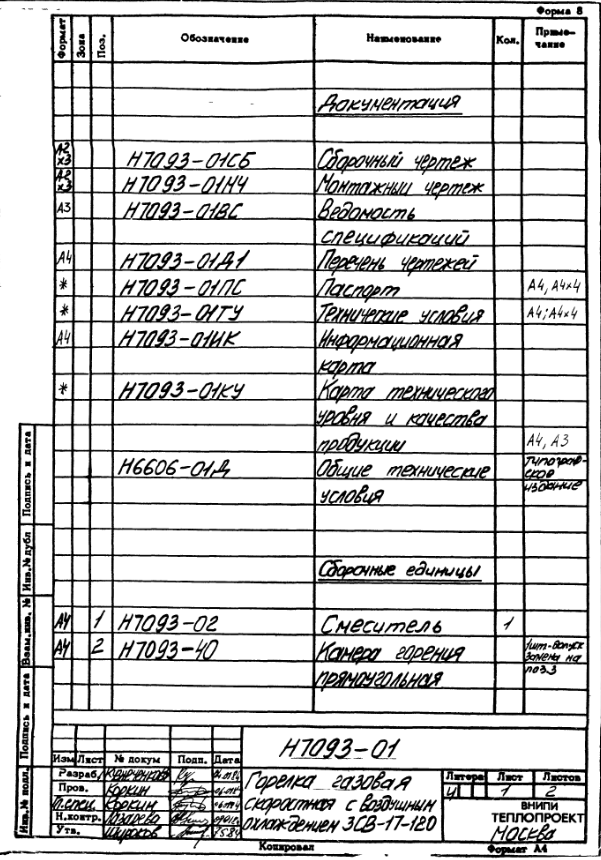 Форма 8
Формат Зона Поз. Обозначение Наименование Кол. Приме-
чание
Документация
А2
х3 Н7093-01СБ Сборочный чертеж
А2
х3 Н7093-01МЧ Монтажный чертеж
А3 Н7093-01ВС Ведомость
спецификаций
А4 Н7093-01Д1 Перечень чертежей
* Н7093-01ПС Паспорт А4, А4х4
* Н7093-01ТУ Технические условия А4; А4х4
А4 Н7093-01ИК Информационная
карта
* Н7093-01КУ Карта технического
уровня и качества
продукции А4, А3
Н6606-01Д Общие технические
условия
типограф-
ское
издание
Сборочные единицы
А4 1 Н7093-02 Смеситель 1
А4 2 Н7093-40 Камера горения
прямоугольная
1шт-допуск
замена на
поз.3
Инв.№ подл. Подпись и дата Взам.инв. № Инв.№ дубл Подпись и дата
Н7093-01
Изм Лист № докум Подп. Дата
Разраб.
Пров. Коркин
Т.спец. Коркин
Н.контр. Лазарева
Утв.
Горелка газовая
скоростная с воздушным
охлаждением ЗСВ-17-120
Литера Лист Листов
И 1 2
ВНИПИ
ТЕПЛОПРОЕКТ
Москва
Копировал Формат А4